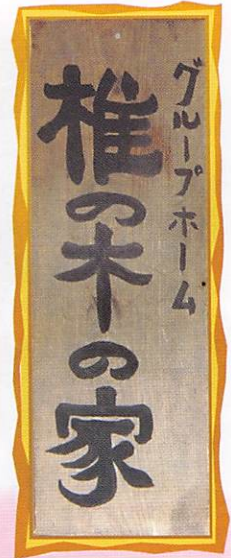 グループホーム
椎の木の家